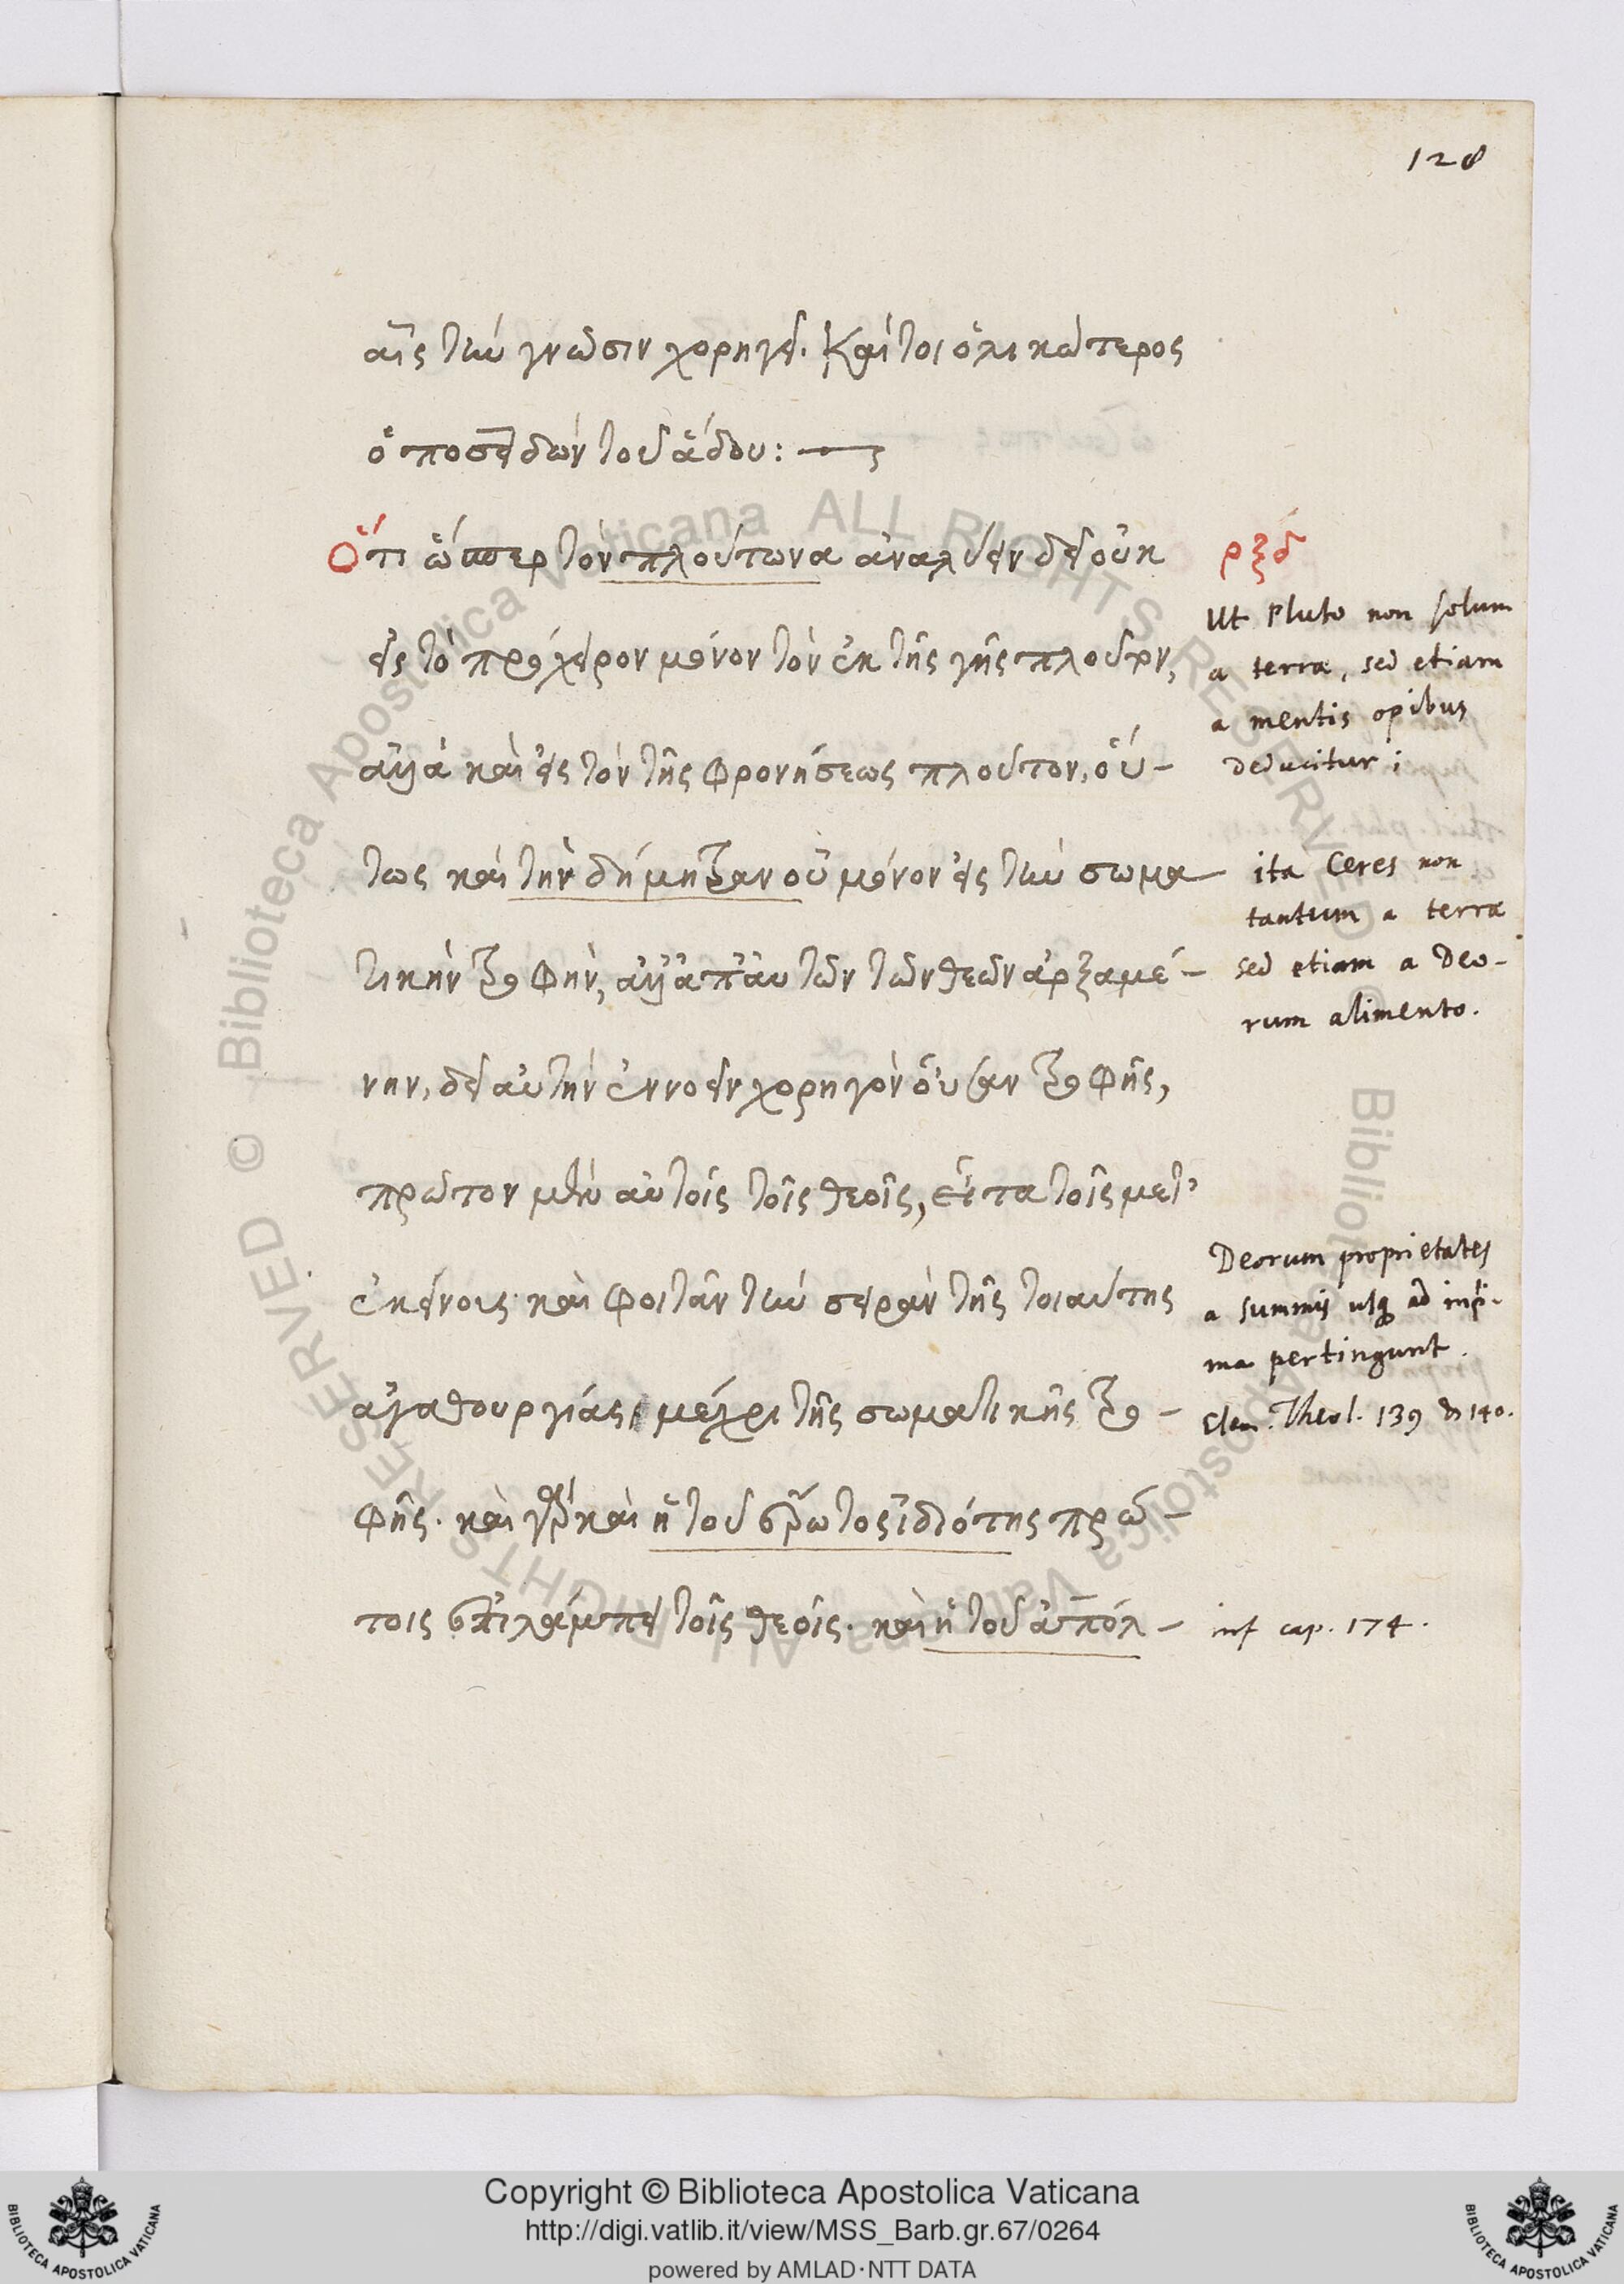 128
αῖς τὴν γνῶσιν χορηγεῖ. Καίτοι ὁλικώτερος
ὁ ποσειδῶν τοῦ ἅδου:
Ὅτι ὥσπερ τὸν πλούτωνα ἀναλύειν δεῖ οὐκ
εἰς τὸ πρόχειρον μόνον τὸν ἐκ τῆς γῆς πλοῦτον,
ἀλλὰ καὶ εἰς τὸν τῆς φρονήσεως πλοῦτον, οὕ-
τως καὶ τὴν δήμητραν οὐ μόνον εἰς τὴν σωμα
τικὴν τροφήν, ἀλλ' ἀπ' αὐτῶν τῶν θεῶν ἀρξαμέ-
νην, δεῖ αὐτὴν ἐννοεῖν χορηγὸν οὖσαν τροφῆς,
πρῶτον μὲν αὐτοῖς τοῖς θεοῖς, εἶτα τοῖς μετ'
ἐκείνοις καὶ φοιτᾶν τὴν σειρὰν τῆς τοιαύτης
ἀγαθουργίας μέχρι τῆς σωματικῆς τρο-
φῆς. καὶ γὰρ καὶ ἡ τοῦ ἔρωτος ἰδιότης πρώ-
τοις ἐπιλάμπει τοῖς θεοῖς. καὶ ἡ τοῦ ἀπόλ-
ρξδ
Ut Pluto non solum
a terra, sed etiam
a mentis opibus
deducitur;
ita Ceres non
tantum a terra
sed etiam a Deo-
rum alimento.
Deorum proprietates
a summis usq ad infi-
ma pertingunt.
Elem. Theol. 139 & 140.
inf cap. 174.
© Biblioteca Apostolica Vaticana ALL RIGHTS RESERVED
© Biblioteca Apostolica Vaticana ALL RIGHTS RESERVED
Copyright © Biblioteca Apostolica Vaticana
http://digi.vatlib.it/view/MSS_Barb.gr.67/0264
powered by AMLAD·NTT DATA
BIBLIOTECA APOSTOLICA VATICANA
BIBLIOTECA APOSTOLICA VATICANA